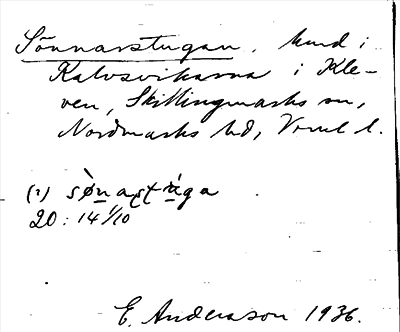 Sönnarstugan, hmd i
Kalvsvikarna i Kle-
ven, Skillingmarks sn,
Nordmarks hd, Vrml l.
(1)
20: 14 1/10
E. Anderson 1936.